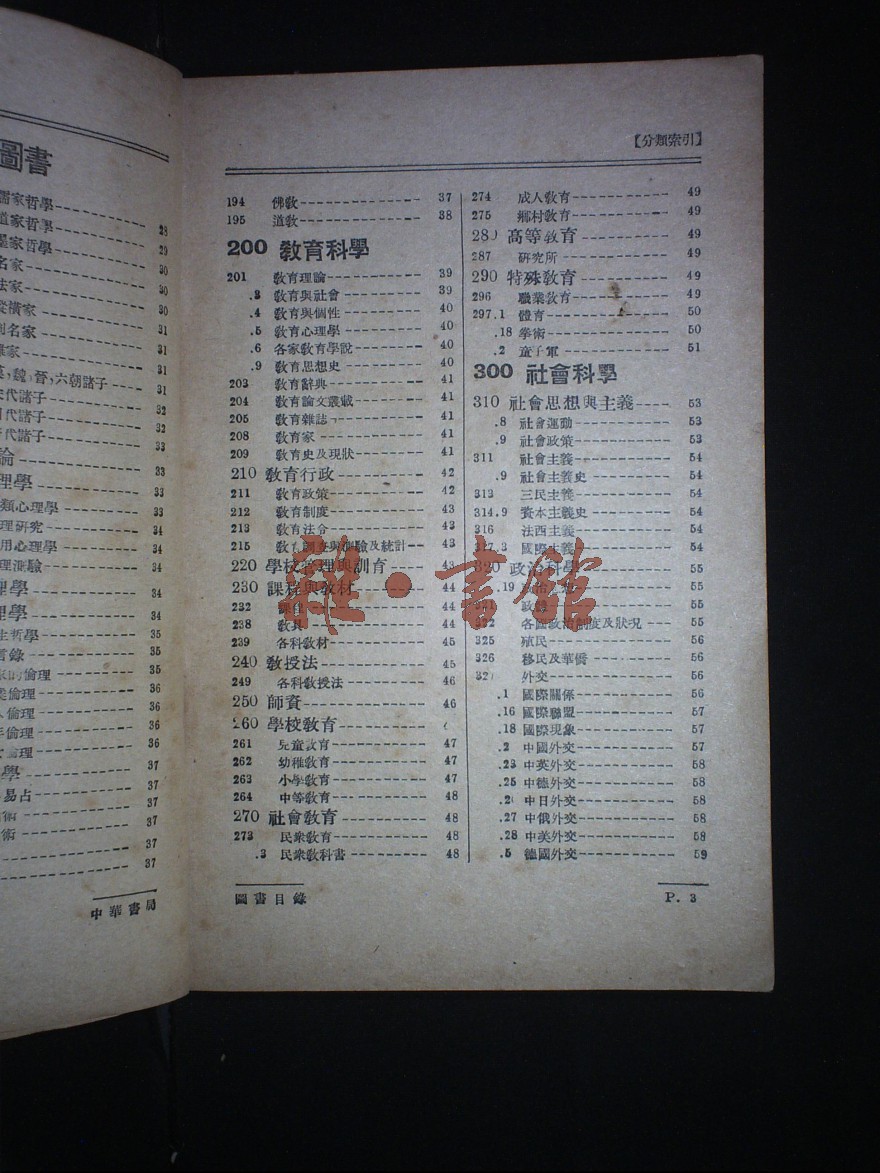 圖書
儒家哲學 28
道家哲學 29
墨家哲學 30
名家 30
法家 30
縱橫家 31
別名家 31
雜家 31
漢,魏,晉,六朝諸子 31
宋代諸子 32
代諸子 32
代諸子 33
論 33
理學 33
類心理學 33
理研究 34
用心理學 34
理測驗 34
理學 34
理學 34
生哲學 35
言錄 35
家的倫理 36
倫理 36
倫理 36
年倫理 36
女倫理 36
學 37
易占 37
術 37
術 37
37
37
中華書局
【分類索引】
194 佛教 37
195 道教 38
200 教育科學
201 教育理論 39
.3 教育與社會 39
.4 教育與個性 40
.5 教育心理學 40
.6 各家教育學說 40
.9 教育思想史 40
203 教育辭典 41
204 教育論文叢載 41
205 教育雜誌 41
208 教育家 41
209 教育史及現狀 41
210 教育行政 42
211 教育政策 42
212 教育制度 43
213 教育法令 43
215 教育調查與測驗及統計 43
220 學校管理與訓育 43
230 課程與教材 44
232 課程 44
238 教具 44
239 各科教材 45
240 教授法 45
249 各科教授法 46
250 師資 46
260 學校教育
261 兒童教育 47
262 幼稚教育 47
263 小學教育 47
264 中等教育 48
270 社會教育 48
273 民衆教育 48
.3 民衆教科書 48
274 成人教育 49
275 鄉村教育 49
280 高等教育 49
287 研究所 49
290 特殊教育 49
296 職業教育 49
297.1 體育 50
.18 學術 50
.2 童子軍 51
300 社會科學
310 社會思想與主義 53
.8 社會運動 53
.9 社會政策 53
311 社會主義 54
.9 社會主義史 54
313 三民主義 54
314.9 資本主義史 54
316 法西主義 54
317.3 國際主義 54
320 政治科學 55
.19 政治思想 55
321 政體 55
322 各國政治制度及狀况 55
325 殖民 55
326 移民及華僑 56
327 外交 56
.1 國際關係 56
.16 國際聯盟 57
.18 國際現象 57
.2 中國外交 57
.23 中英外交 58
.25 中德外交 58
.26 中日外交 58
.27 中俄外交 58
.28 中美外交 58
.5 德國外交 59
圖書目錄
P. 3
雜·書館